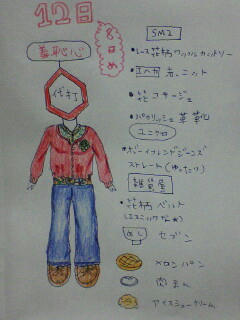 12日
8日め
羞恥心
代打
SM2
•レース花柄ワッフルカットソー
•エハガ 赤ニット
•花コサージュ
•パラリッシュ 革靴
ユニクロ
•ボーイフレンドジーンズ
ストレート(ゆったり)
雑貨屋
•花柄ベルト
(エスニックなat)
めし セブン
メロンパン
肉まん
アイスシュークリーム